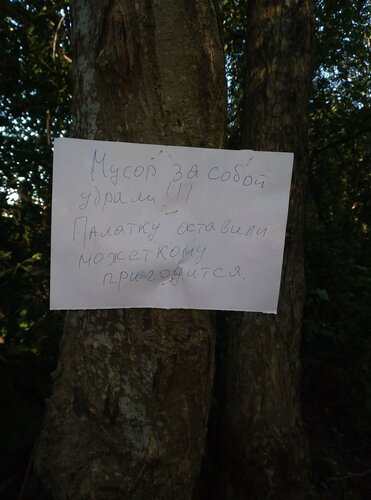 Мусор за собой
убрали!!!
Палатку оставили
можеткому
пригодится.